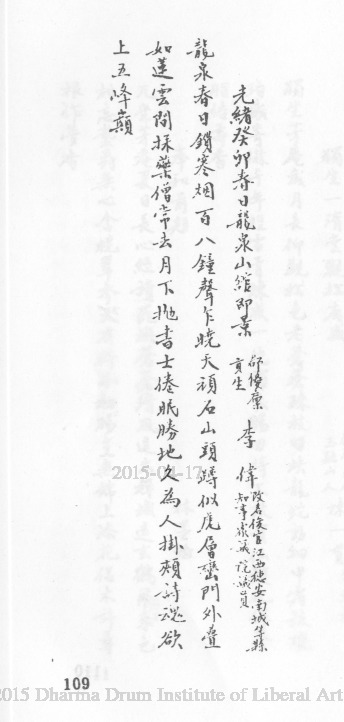 光緒癸卯春日龍泉山館即景 郃優廩貢生 李偉 改名俊官江西德安南城等縣知事眾議院議員
龍泉春日鎖寒烟百八鐘聲乍曉天頑石山頭蹲似虎層巒門外疊
如蓮雲間採藥僧常去月下拋書士倦眠勝地久為人掛頰詩魂欲
上五峰巔
109
2015-04-17
2015 Dharma Drum Institute of Liberal Art